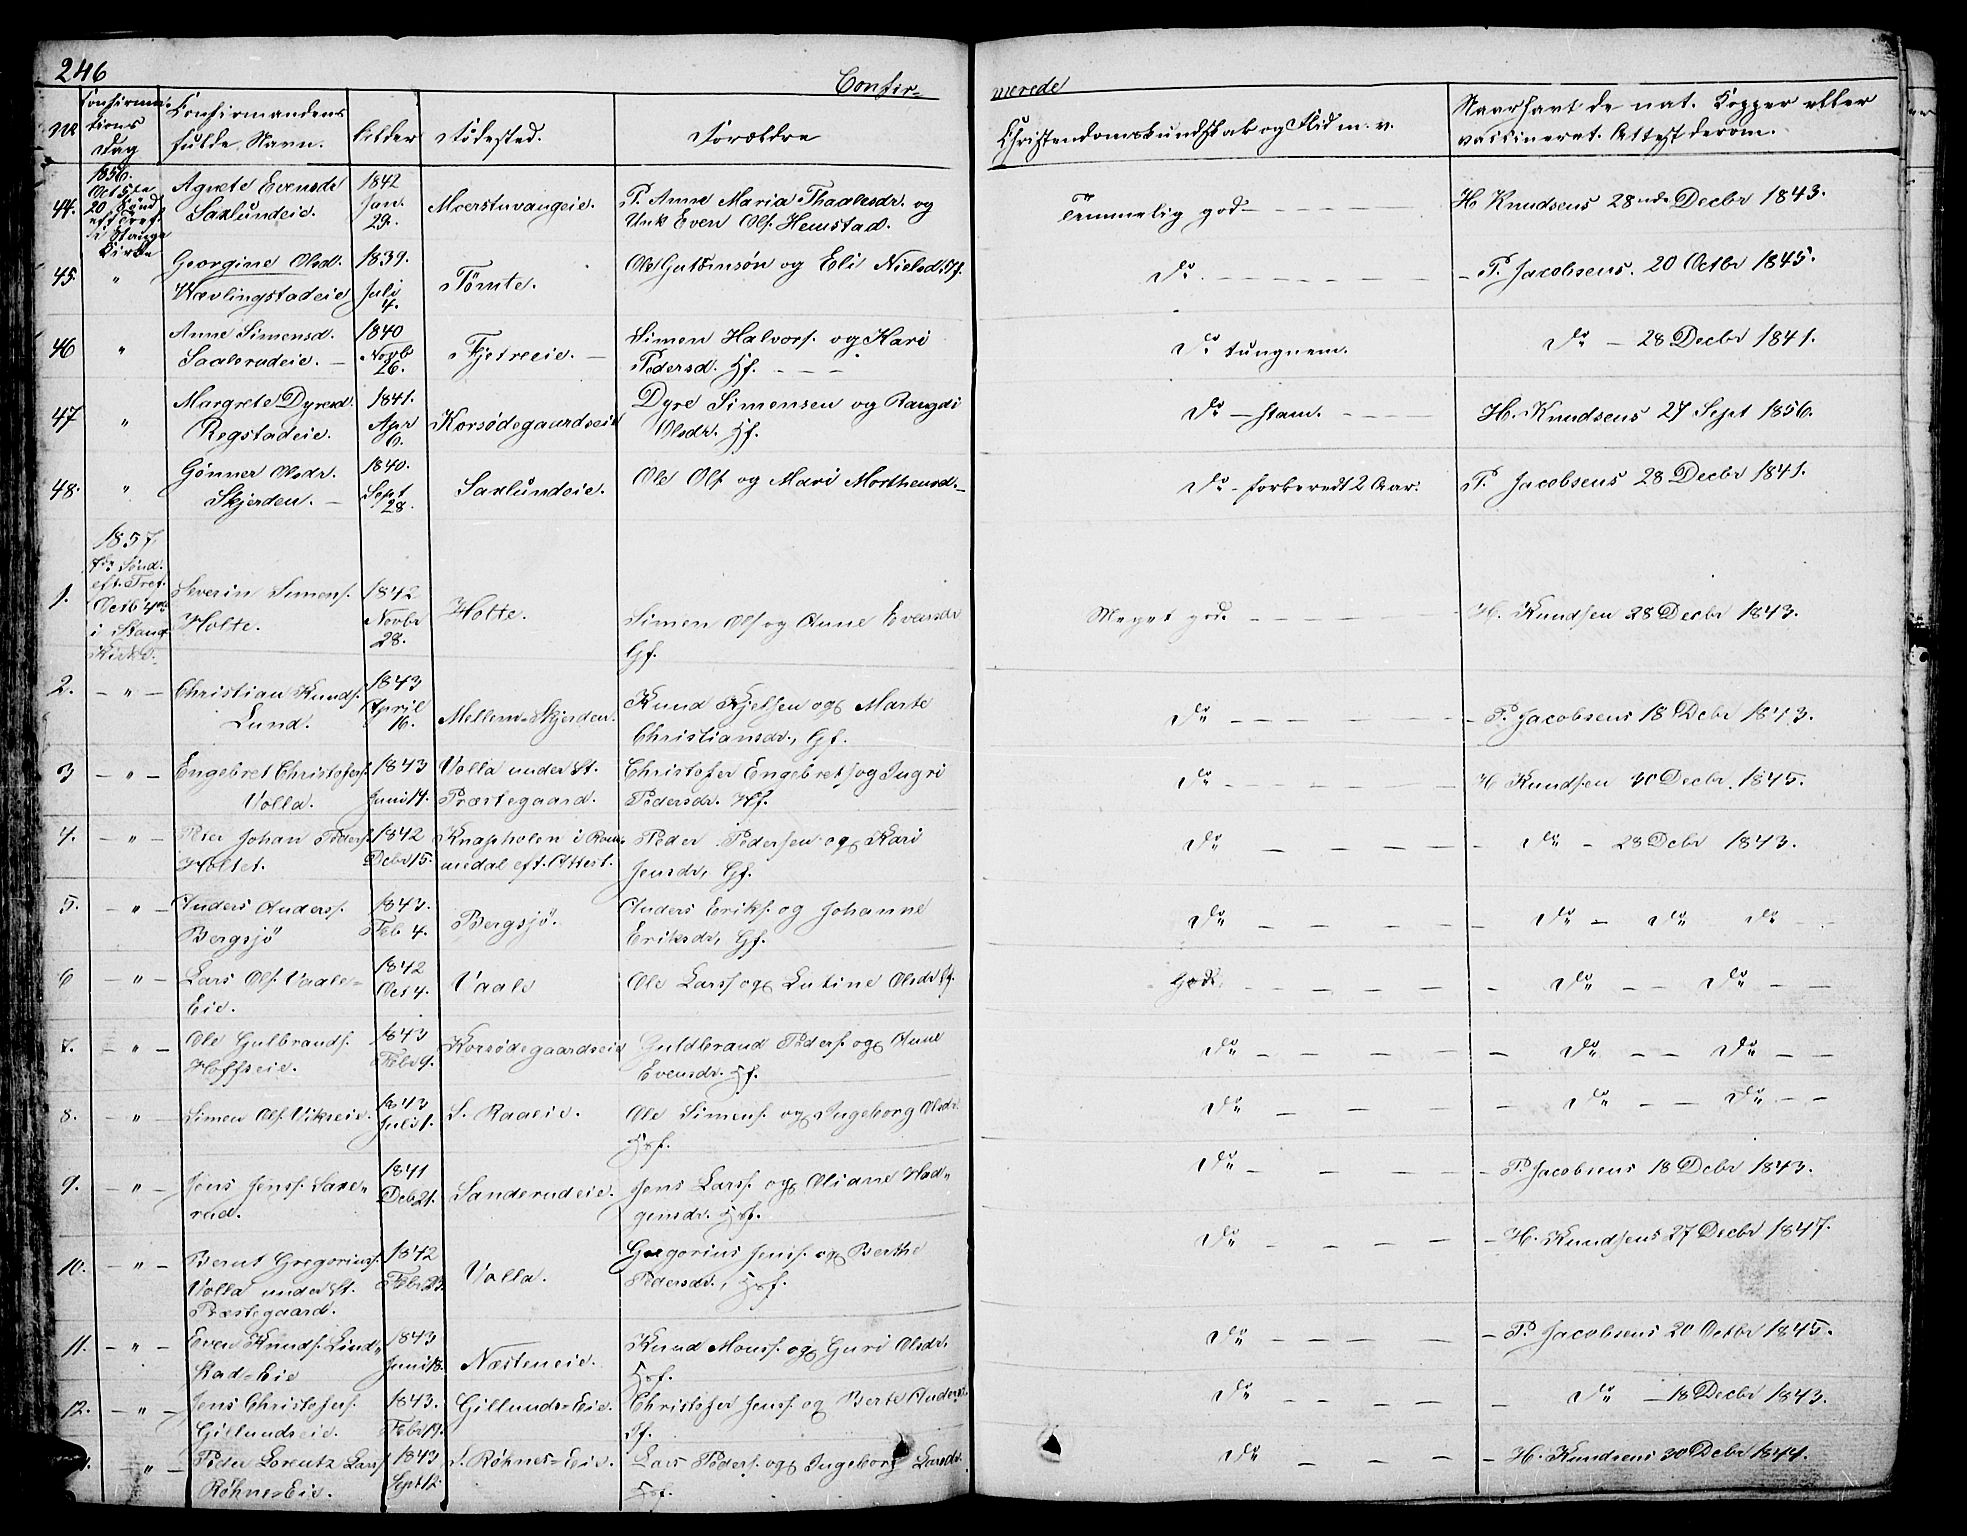 246
Confir-
merede
No
Confirma-
tions
Dag
Confirmandens
fulde Navn.
Alder
Fødested.
Forældre
Christendomskundskab og Flid m. v.
Naar havt de nat. Kopper eller
vaccineret. Attest derom.
44.
1856.
Oct 5te
20 Sønd
eft Tref.
i Stange
Kirke
Agnete Evensdr
Saxlundeie.
1842
Jan.
29.
Moerstuvangeie.
P. Anne Maria Thaalesdr. og
Unk Even Ols. Hemstad.
Temmelig god
H Knudsens 28nde Decbr 1843.
45.
"
Georgine Olsd.
Wævlingstadeie
1839.
Juli
4.
Tømte.
Ole Guttmsøn og Eli Nielsd. Hf.
Do
- P. Jacobsens. 20 Octbr 1845.
46
"
Anne Simensd.
Saalerudeie. -
1840
Novb
26.
Fjetreeie. -
Simen Halvors. og Kari
Pedersd. Hf.
Do tungnem.
Do - 28 Decbr 1841.
47
"
Margrete Dyresd.
Regstadeie.
1841.
Apr
6.
Korsødegaardseie
Dyre Simensen og Rangdi
Olsdr. Hf.
Do - ham.
H. Knudsens 27 Sept 1856.
48.
"
Gönner Olsdr.
Skjerden. -
1840.
Sept
28.
Saxlundeie.
Ole Ols og Mari Morthensd. -
Do - forberedt 2 Aar.
P. Jacobsens 28 Decbr 1841.
1.
1857.
7de Sønd.
eft. Tref.
Oct 4de
i Stang
Kirke.
Severin Simens.
Holte.
1842
Novbr
28.
Holte.
Simen Ols og Anne Evensdr
Gf.
Meget god.
H. Knudsen 28 Decbr 1843.
2.
- " -
Christian Knuds.
Lund.
1843
April
16.
Mellem-Skjerden.
Knud Kjelsen og Marte
Christiansdr., Gf.
Do
- P. Jacobsens 18 Debr 1843.
3
- " -
Engebret Christofers.
Volla.
1843
Juni 14.
Volla under St.
Præstegaard.
Christofer Engebrets og Ingri
Pedersdr. Hf.
Do
H Knudsen 30 Decbr. 1845.
4.
- " -
Peter Johan Peders.
Holtet.
1842
Debr 15.
Knapholen i Rom-
usdal eft. Attest.
Peder Pedersen og Kari
Jensdr, Gf.
Do
Do - 28 Debr 1843.
5.
- " -
Anders Anders.
Bergsjø
1843.
Feb 4.
Bergsjø.
Anders Eriks. og Johanne
Eriksdr, Gf.
Do
Do - Do Do
6
- " -
Lars Ols. Vaale-
Eie.
1842
Oct 4.
Vaale
Ole Larss og Lutine Olsdr Hf.
God.
Do - - Do - -
7.
- " -
Ole Gulbrands.
Hoffseie.
1843
Febr 9.
Korsødegaardseie
Guldbrand Peders. og Anne
Evensdr. Hf.
Do
Do - - Do - -
8.
- "
Simen Ols. Vikseie.
1843
Juli 1.
S. Raaeie.
Ole Simens. og Ingeborg Olsdr.
Hsf.
Do
Do - - Do - -
9.
- " -
Jens Jenss. Saxe-
rud.
1841
Deb 21.
Sanderudeie.
Jens Larss. og Oliane Had-
gemsdr. Hsf.
Do
- P. Jacobsens 18 Debr 1843.
10.
- " -
Bernt Gregoriuss.
Volla under St.
Præstegaard.
1842
Febr 23.
Volla.
Gregorius Jenss. og Berthe
Pedersdr., Hsf.
Do
- H. Knudsens 27 Decbr 1847.
11.
- " -
Even Knuds. Lind-
stad-Eie
1843
Juni 18.
Næsteneie.
Knud Monss. og Guri Olsdr.
Hsf.
Do
- P. Jacobsens 20 Octbr 1845.
12.
- " -
Jens Christofers.
Gillundseie.
1843.
Febr 19.
Gillunds-Eie.
Christofer Jenss. og Berte Anders.
Hf.
Do
- Do - 18 Decbr 1843.
- " -
Peder Lorentz Larss
Røhnes Eie.
1843
Sept 12
S. Røhnes-Eie.
Lars Peders. og Ingeborg Larsdr.
Hsf.
Do
- H. Knudsens 30 Debr 1844.